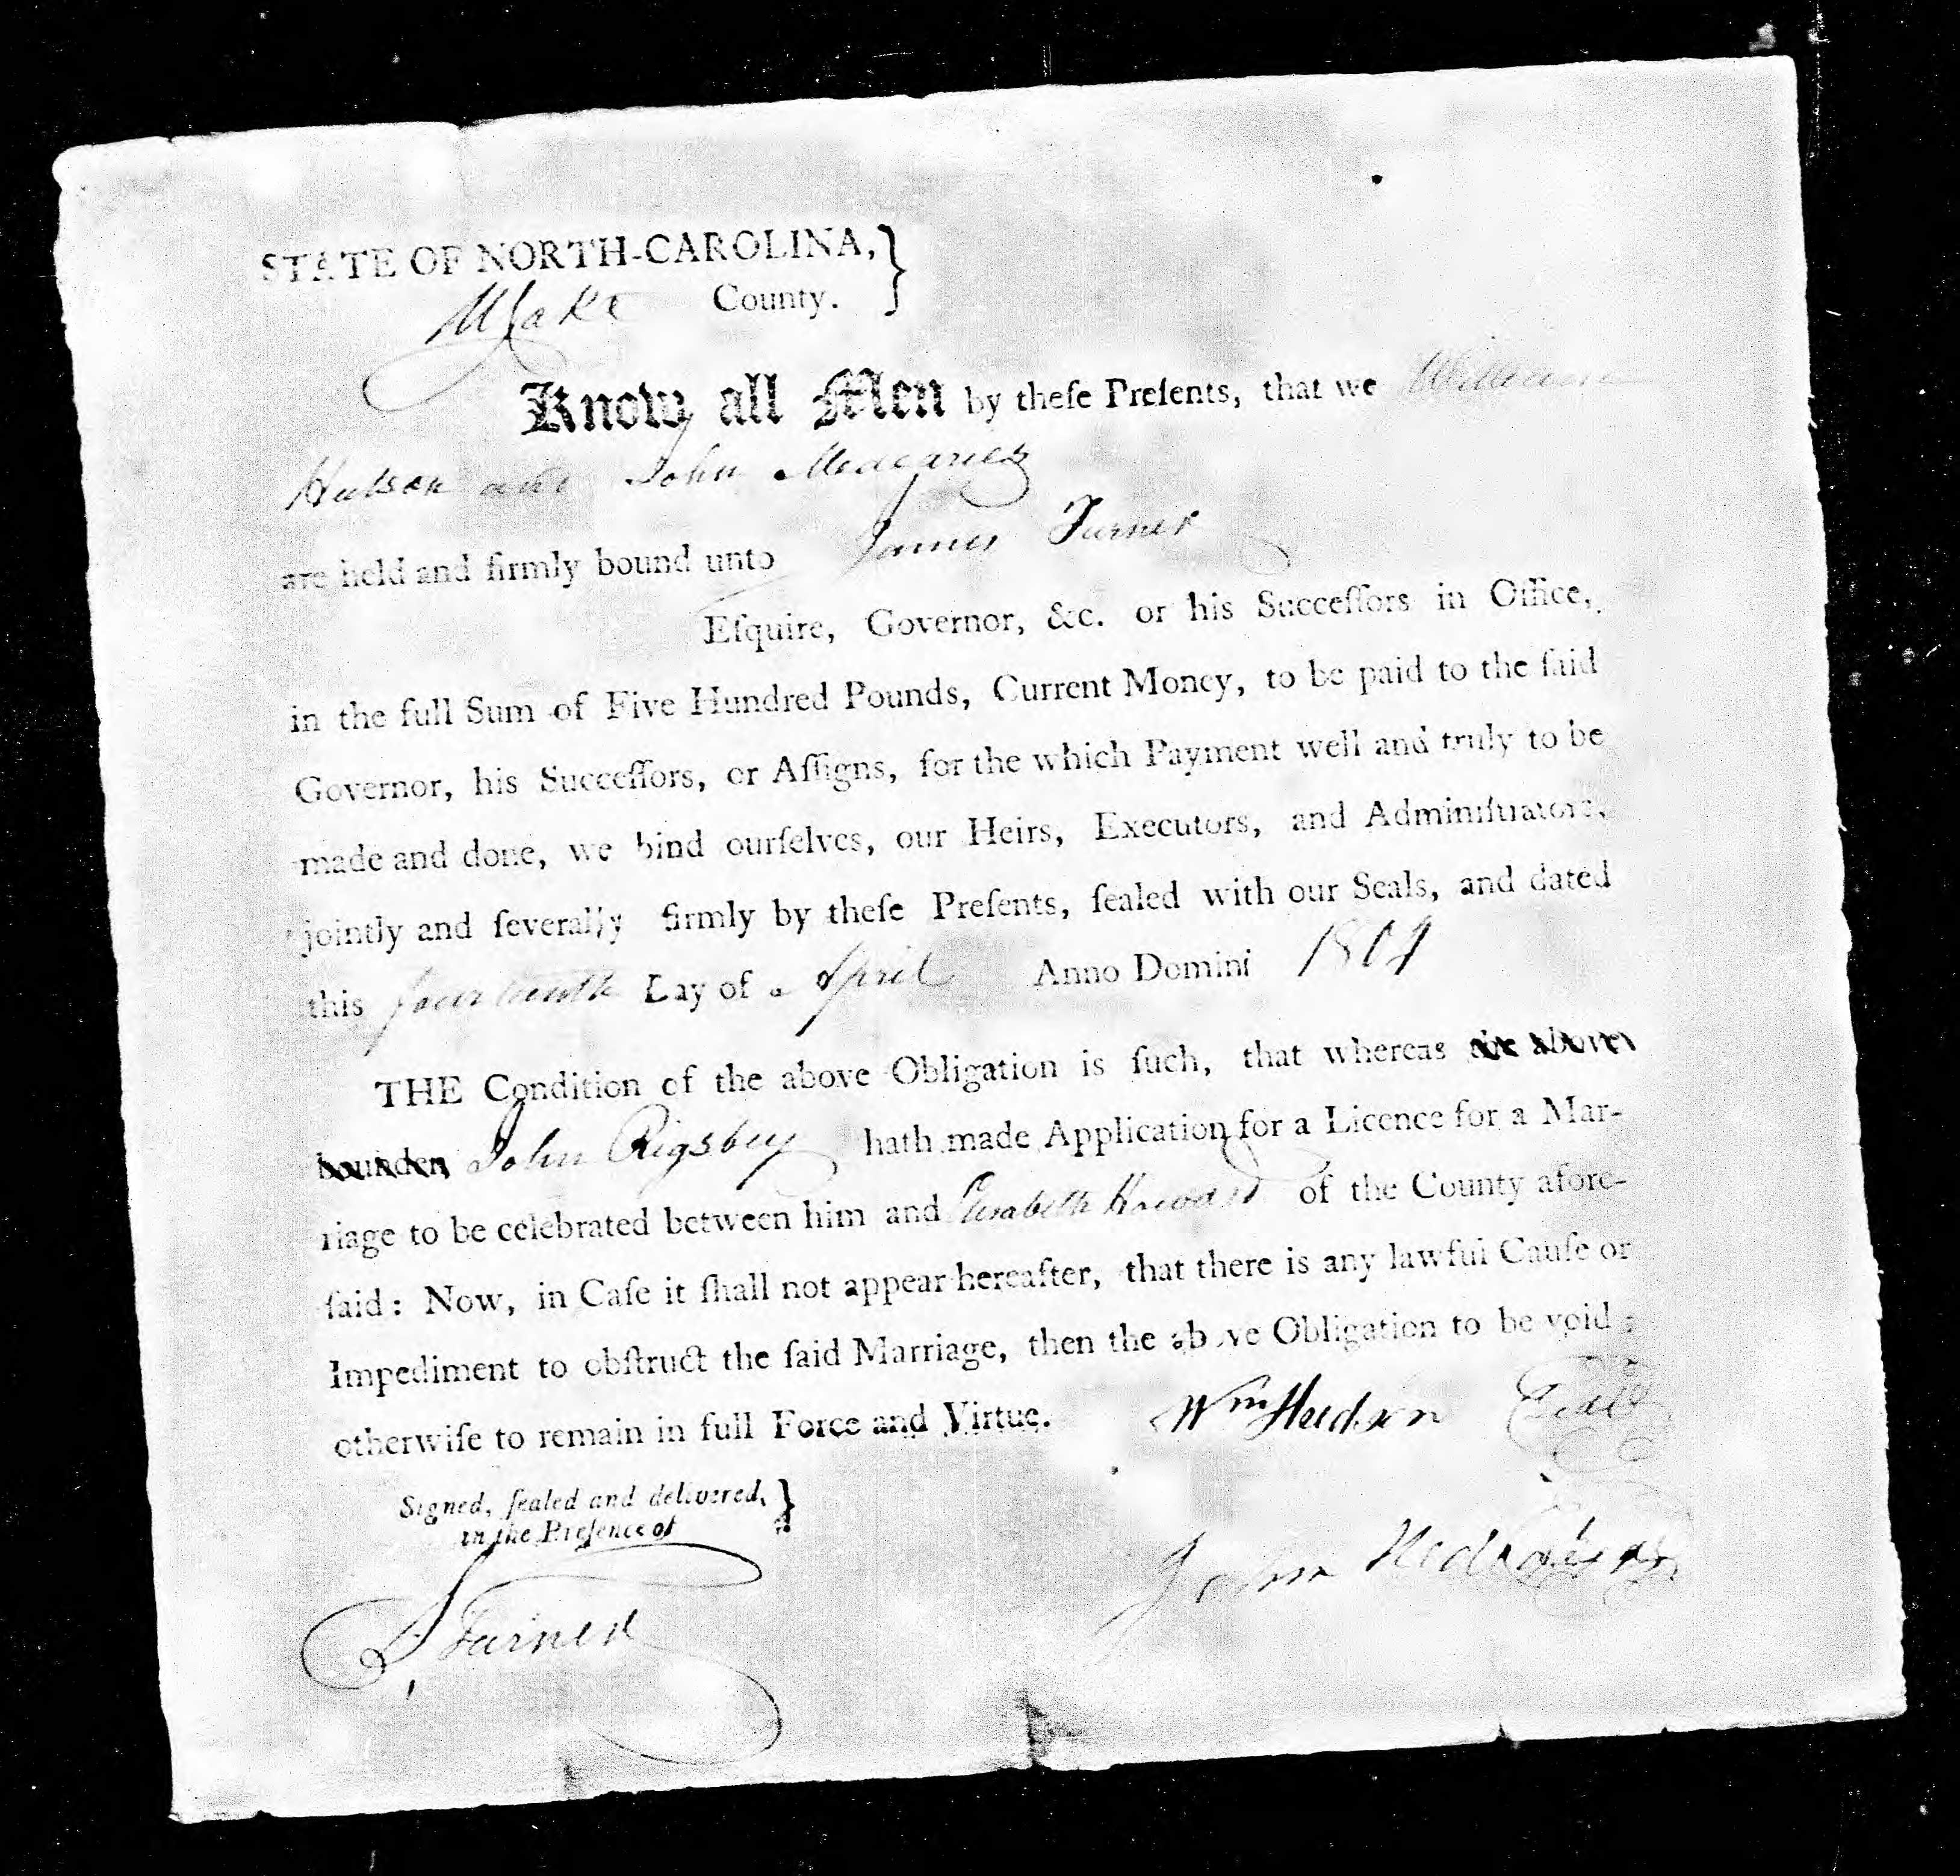 STATE OF NORTH-CAROLINA, }
Wake County.
Know all Men by theſe Preſents, that we William
Hutson and John Medearies
are held and firmly bound unto James Turner
Eſquire, Governor, &c. or his Succeſſors in Office,
in the full Sum of Five Hundred Pounds, Current Money, to be paid to the ſaid
Governor, his Succeſſors, or Aſſigns, for the which Payment well and truly to be
made and done, we bind ourſelves, our Heirs, Executors, and Adminiſtrators,
jointly and ſeverally firmly by theſe Preſents, ſealed with our Seals, and dated
this fourteenth Day of April Anno Domini
THE Condition of the above Obligation is ſuch, that whereas the above
bounden John Rigsbey hath made Application for a Licence for a Mar-
riage to be celebrated between him and Elisabeth Howard of the County afore-
ſaid: Now, in Caſe it ſhall not appear hereafter, that there is any lawful Cauſe or
Impediment to obſtruct the ſaid Marriage, then the above Obligation to be void;
otherwiſe to remain in full Force and Virtue. Wm Hudson Seal
Signed, ſealed and delivered, }
in the Preſence of
John
Turner